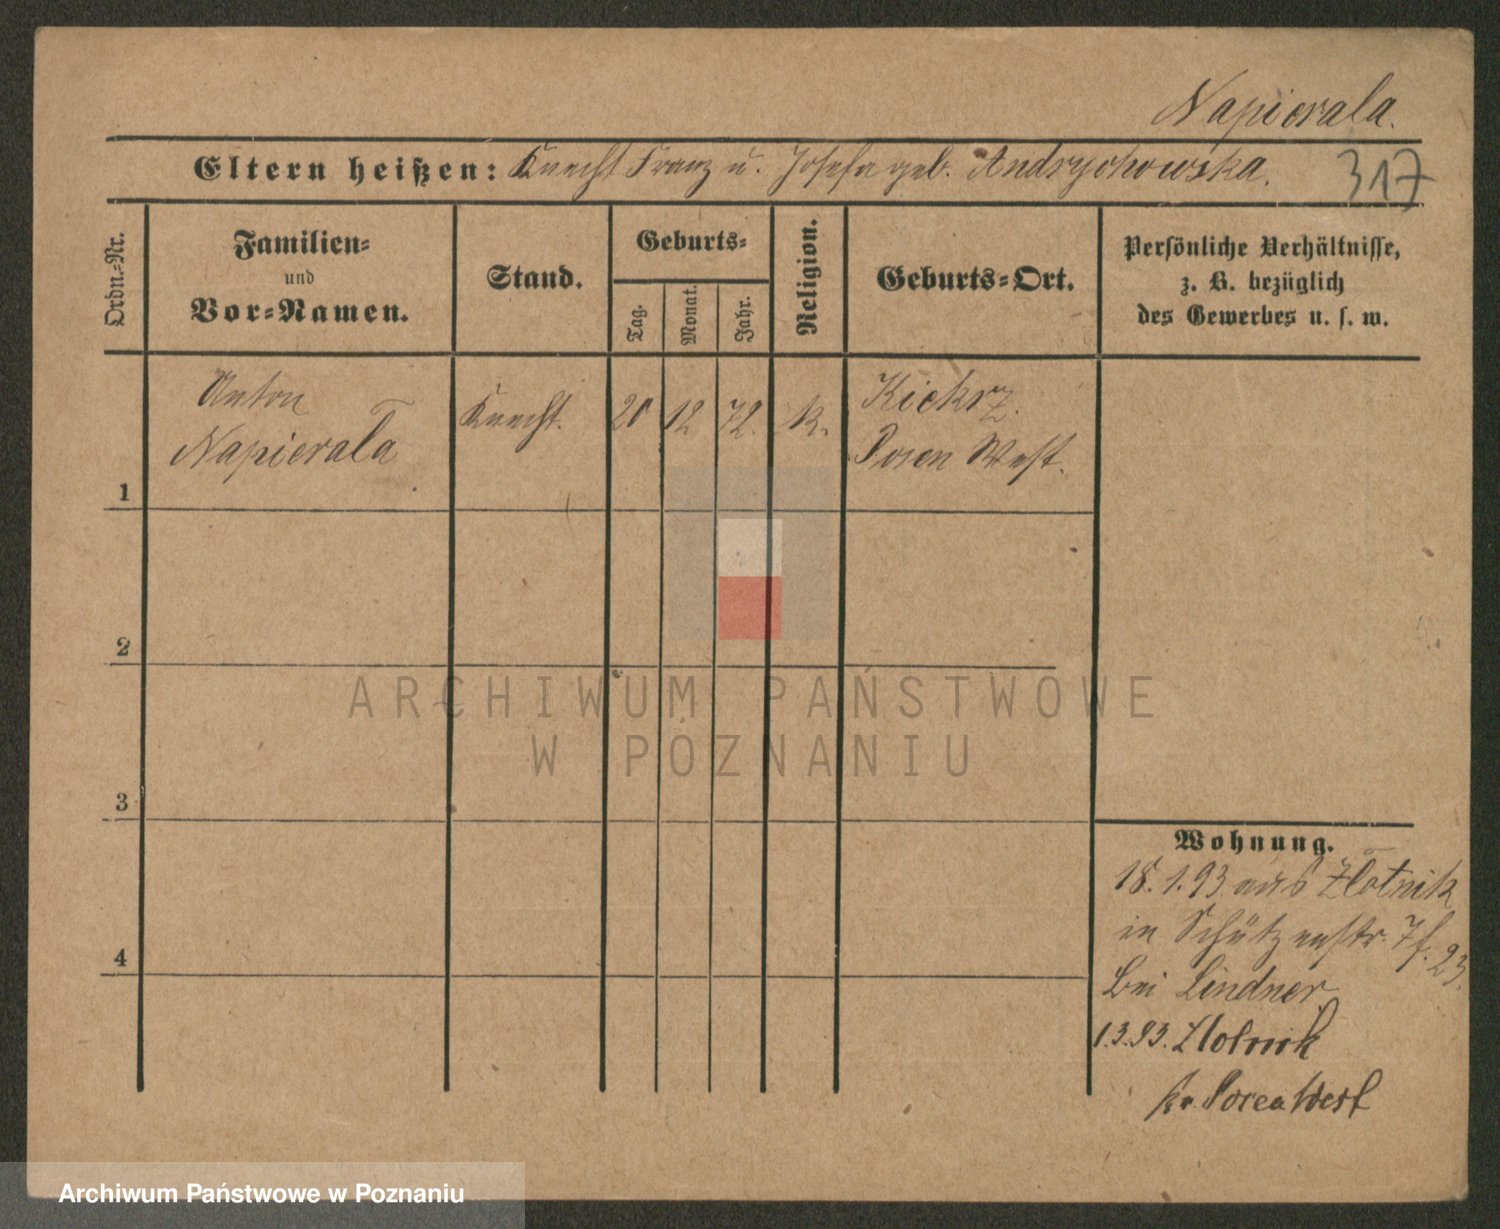 Napierala.
Eltern heißen: Knecht Franz u. Josefa geb. Andrychowska.
317
Ordn.-Nr.
Familien-
und
Vor-Namen.
Stand.
Geburts-
Tag.
Monat.
Jahr.
Religion.
Geburts-Ort.
Persönliche Verhältnisse,
z. B. bezüglich
des Gewerbes u. s. w.
Anton
Napierała
Knecht.
20
12
72.
k.
Kiekrz.
Posen West.
1
2
3
4
ARCHIWUM PAŃSTWOWE
W POZNANIU
Wohnung.
18.1.93. aus Złotnik
in Schützenstr. 23.
bei Lindner
1.3.93. Zlotnik
Kr. Posen West
Archiwum Państwowe w Poznaniu